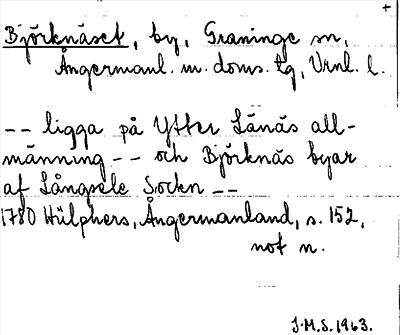 +
Björknäset, by, Graninge sn,
Ångermanl. m. doms. tg, Vrnl. l.
-- ligga på Ytter Länäs all-
männing -- och Björknäs byar
af Långsele Sockn --
1780 Hülphers, Ångermanland, s. 152,
not n.
J.M.S. 1963.